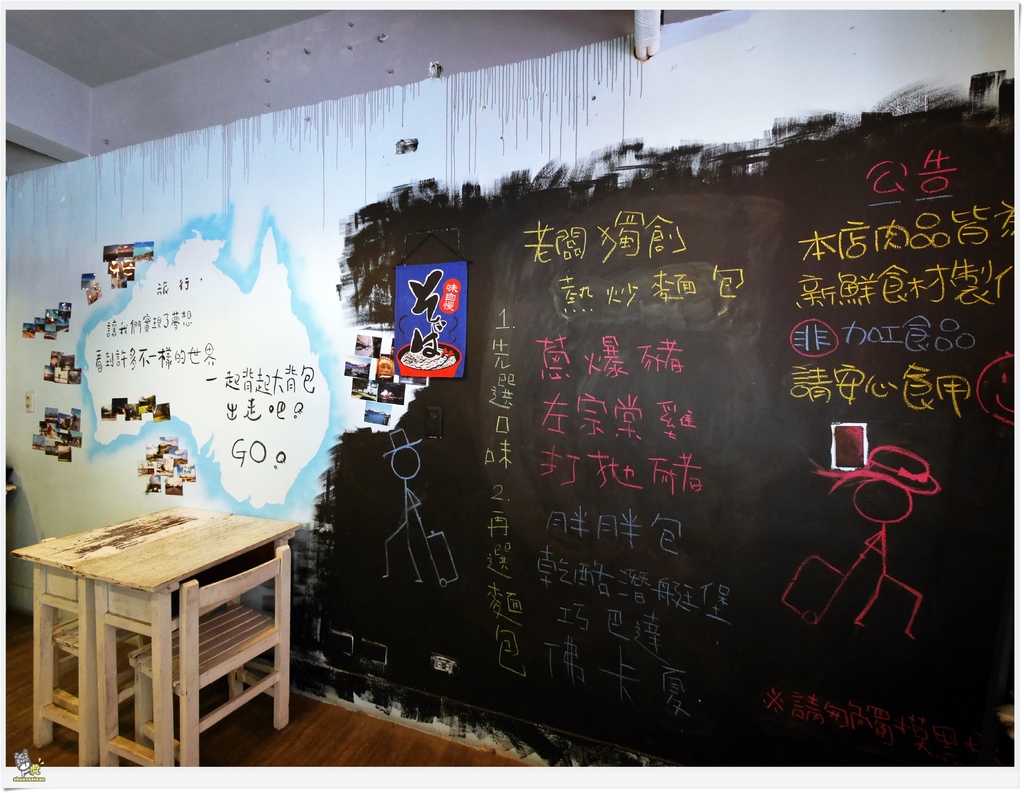 旅行,
讓我們實現了夢想
看到許多不一樣的世界
一起背起大背包
出走吧?
GO。
味自慢
そば
1.先選口味
2.再選麵包
老闆獨創
熱炒麵包
蔥爆豬
左宗棠雞
打拋豬
胖胖包
乾酪潛艇堡
巧巴達
佛卡夏
公告
本店肉品皆為
新鮮食材製作
非加工食品
請安心食用
※請勿觸摸黑